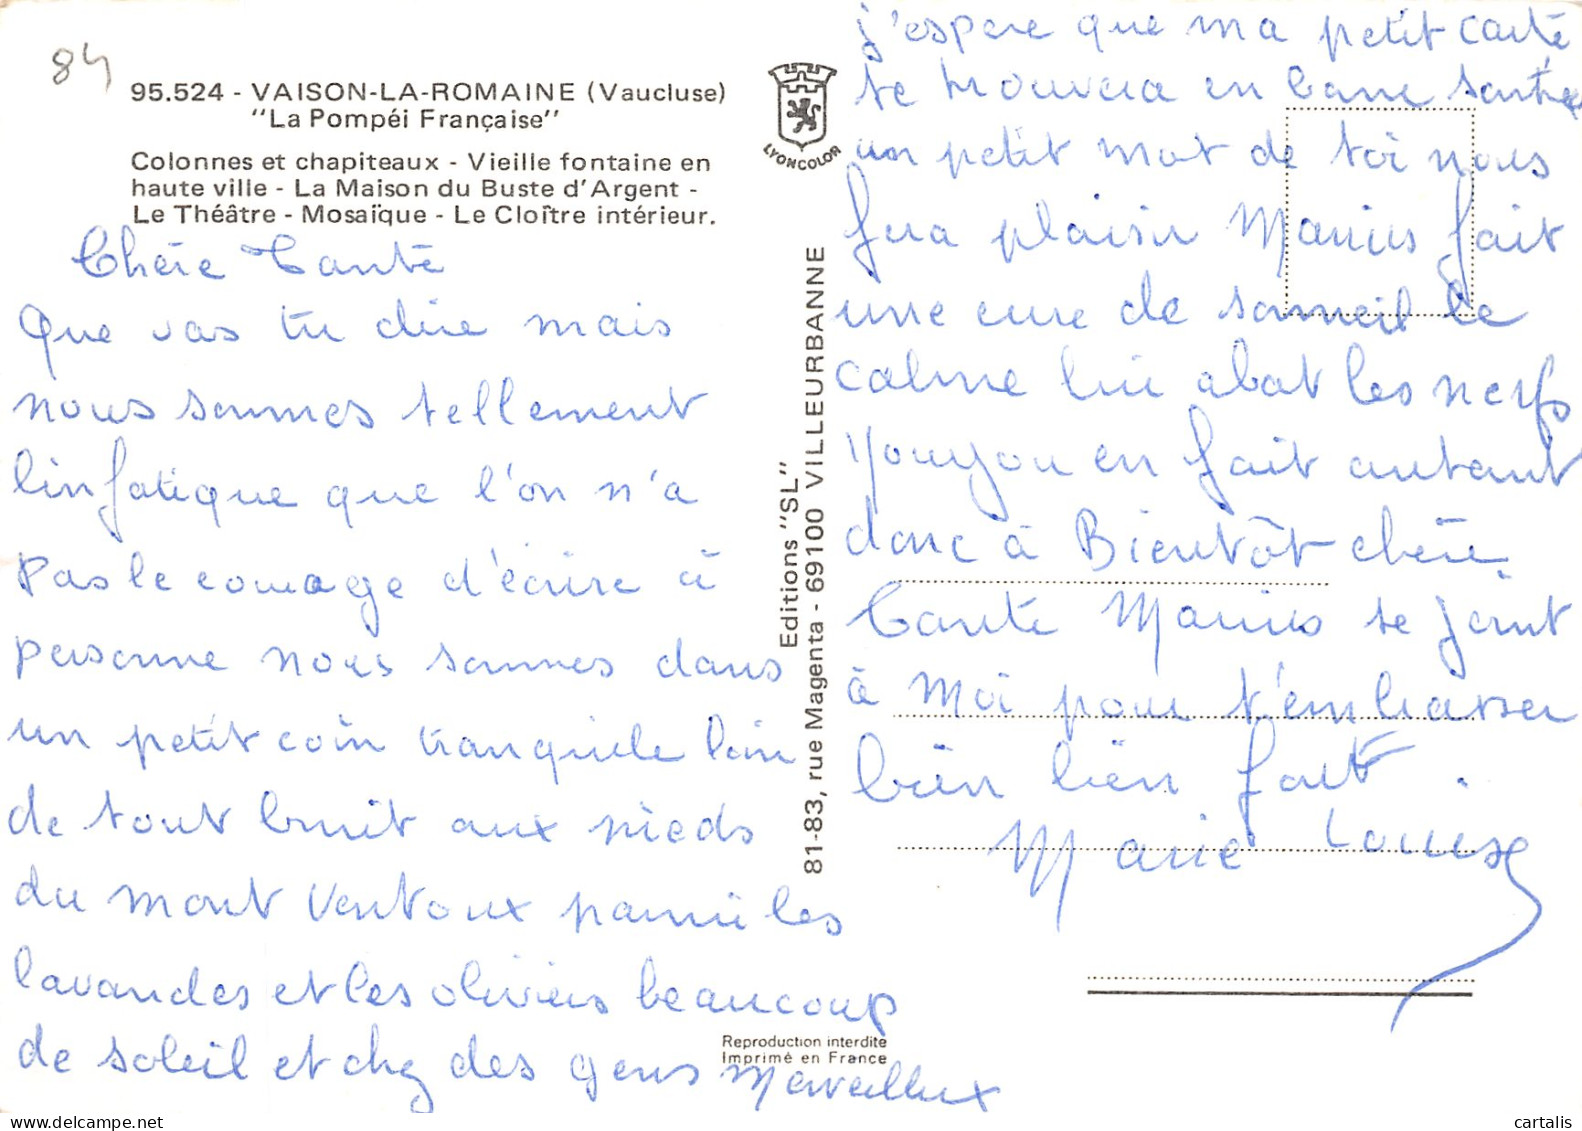 84
95.524 - VAISON-LA-ROMAINE (Vaucluse)
"La Pompéi Française"
Colonnes et chapiteaux - Vieille fontaine en
haute ville - La Maison du Buste d'Argent -
Le Théâtre - Mosaïque - Le Cloître intérieur.
Chère Tante
Que vas tu dire mais
nous sommes tellement
linfatique que l'on n'a
pas le courage d'écrire à
personne nous sommes dans
un petit coin tranquile loin
de tout bruit aux pieds
du mont Ventoux parmi les
lavandes et les oliviers beaucoup
de soleil et chez des gens merveillux
LYONCOLOR
Editions "SL"
81-83, rue Magenta - 69100 VILLEURBANNE
Reproduction interdite
Imprimé en France
j'espere que ma petit carte
te trouvera en bonne santé
un petit mot de toi nous
fera plaisir Marius fait
une cure de sommeil le
calme lui abat les nerfs
Youyou en fait autant
donc à Bientôt chère
Tante Marius se joint
à Moi pour t'embrasser
bien bien fort.
Marie Louise
cartalis